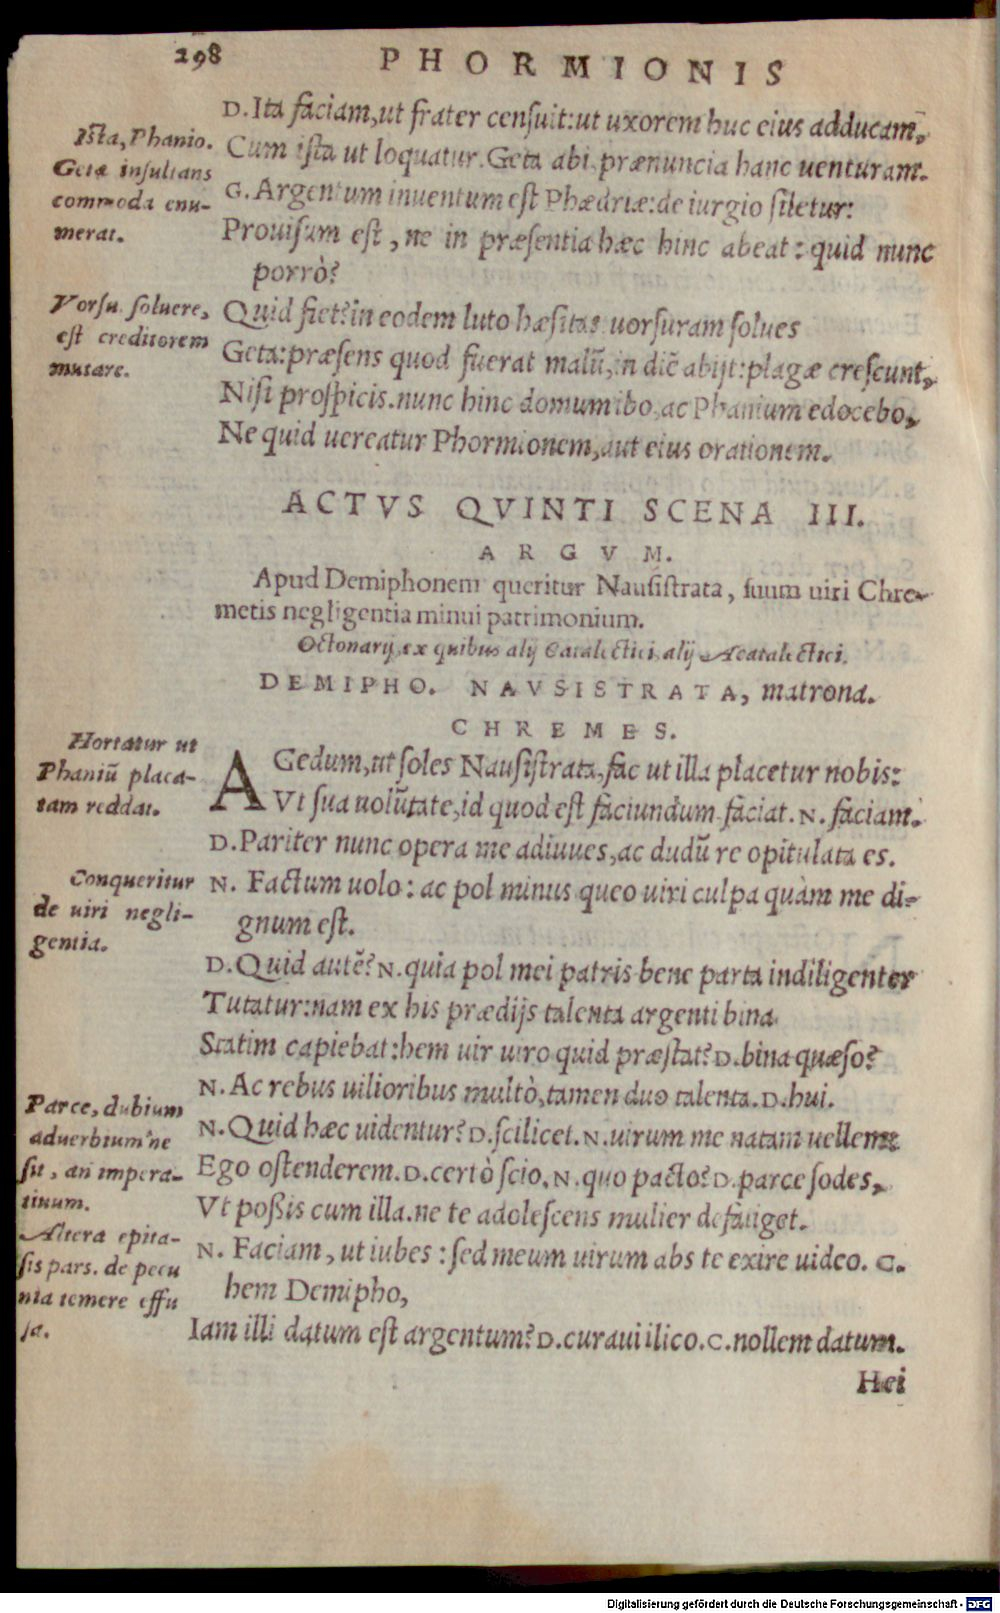 298
PHORMIONIS
D. Ita faciam, ut frater censuit: ut uxorem huc eius adducam,
Cum ista ut loquatur. Geta abi, prænuncia hanc uenturam.
G. Argentum inuentum est Phædriæ: de iurgio siletur:
Prouisum est, ne in præsentia hæc hinc abeat: quid nunc
porrò?
Quid fiet? in eodem luto hæsitas: uorsuram solues
Geta: præsens quod fuerat malũ, in diẽ abijt: plagæ crescunt,
Nisi prospicis. nunc hinc domum ibo, ac Phanium edocebo,
Ne quid uereatur Phormionem, aut eius orationem.
Ista, Phanio.
Getæ insultans
commoda enu-
merat.
Vorsu. soluere,
est creditorem
mutare.
ACTVS QVINTI SCENA III.
ARGVM.
Apud Demiphonem queritur Nausistrata, suum uiri Chre-
metis negligentia minui patrimonium.
Octonarij, ex quibus alij Catalectici, alij Acatalectici.
DEMIPHO. NAVSISTRATA, matrona.
CHREMES.
AGedum, ut soles Nausistrata, fac ut illa placetur nobis:
Vt sua uolũtate, id quod est faciundum faciat. N. faciam.
D. Pariter nunc opera me adiuues, ac dudũ re opitulata es.
N. Factum uolo: ac pol minus queo uiri culpa quàm me di-
gnum est.
D. Quid autẽ? N. quia pol mei patris bene parta indiligenter
Tutatur: nam ex his prædijs talenta argenti bina
Statim capiebat: hem uir uiro quid præstat? D. bina quæso?
N. Ac rebus uilioribus multò, tamen duo talenta. D. hui.
N. Quid hæc uidentur? D. scilicet. N. uirum me natam uellem:
Ego ostenderem. D. certò scio. N. quo pacto? D. parce sodes,
Vt poßis cum illa. ne te adolescens mulier defatiget.
N. Faciam, ut iubes: sed meum uirum abs te exire uideo. C.
hem Demipho,
Iam illi datum est argentum? D. curaui ilico. C. nollem datum.
Hei
Hortatur ut
Phaniũ placa-
tam reddat.
Conqueritur
de uiri negli-
gentia.
Parce, dubium
aduerbium'ne
sit, an impera-
tiuum.
Altera epita-
sis pars. de pecu
nia temere effu
sa.
Digitalisierung gefördert durch die Deutsche Forschungsgemeinschaft - DFG